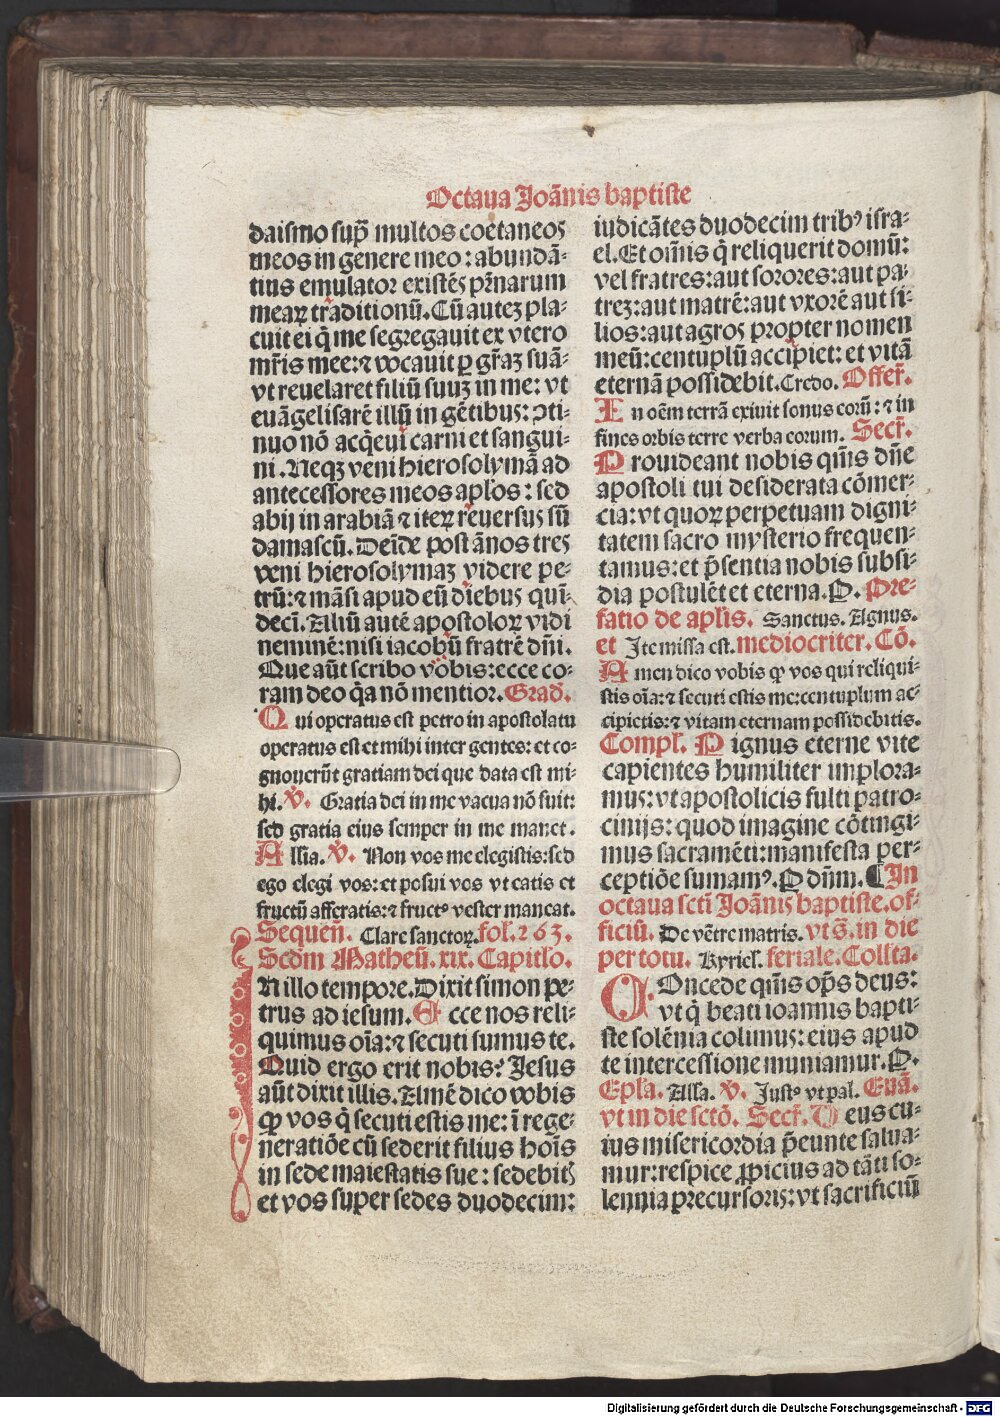 Octaua Joānis baptiste
daismo sup̄ multos coetaneos
meos in genere meo: abundā-
tius emulator existēs pr̄narum
mearꝝ traditionū. Cū autez pla-
cuit ei q̄ me segregauit ex vtero
mr̄is mee: ⁊ vocauit ꝑ gr̄az suā-
vt reuelaret filiū suuz in me: vt
euāgelisarē illū in gētibus: ꝯti-
nuo nō acq̄eui carni et sangui-
ni. Neqꝫ veni hierosolymā ad
antecessores meos apl̄os: sed
abij in arabiā ⁊ iteꝝ reuersus sū
damascū. Deīde post ānos tres
veni hierosolymaz videre pe-
trū: ⁊ māsi apud eū diebus qui-
decī. Aliū autē apostoloꝝ vidi
neminē: nisi iacobū fratrē dn̄i.
Que aūt scribo vobis: ecce co-
ram deo q̄a nō mentior. Grad̄.
Qui operatus est petro in apostolatu
operatus est et mihi inter gentes: et co-
gnouerūt gratiam dei que data est mi-
hi. V̄. Gratia dei in me vacua nō fuit:
sed gratia eius semper in me manet.
Allia. V̄. Non vos me elegistis: sed
ego elegi vos: et posui vos vt eatis et
fructū afferatis: ⁊ fructꝰ vester maneat.
Sequen̄. Clare sanctoꝝ. fol. 263.
Scd̄m Matheū. xix. Capitl̓o.
IN illo tempore. Dixit simon pe-
trus ad iesum. Ecce nos reli-
quimus oīa: ⁊ secuti sumus te.
Quid ergo erit nobis? Jesus
aūt dixit illis. Amē dico vobis
ꝙ vos q̄ secuti estis me: ī rege-
neratiōe cū sederit filius hoīs
in sede maiestatis sue: sedebitꝭ
et vos super sedes duodecim:
iudicātes duodecim tribꝰ isra-
el. Et om̄is q̄ reliquerit domū:
vel fratres: aut sorores: aut pa-
trez: aut matrē: aut vxorē aut fi-
lios: aut agros propter nomen
meū: centuplū accipiet: et vitā
eternā possidebit. Credo. Offer̄.
In oēm terrā exiuit sonus eorū: ⁊ in
fines orbis terre verba eorum. Secr̄.
Prouideant nobis qm̄s dn̄e
apostoli tui desiderata cōmer-
cia: vt quoꝝ perpetuam digni-
tatem sacro mysterio frequen-
tamus: et p̄sentia nobis subsi-
dia postulēt et eterna. P. Pre-
fatio de apl̄is. Sanctus. Agnus.
et Ite missa est. mediocriter. Cō.
Amen dico vobis ꝙ vos qui reliqui-
stis oīa: ⁊ secuti estis me: centuplum ac-
cipietis: ⁊ vitam eternam possidebitis.
Compl̄. Pignus eterne vite
capientes humiliter implora-
mus: vt apostolicis fulti patro-
cinijs: quod imagine cōtingi-
mus sacramēti: manifesta per-
ceptiōe sumamꝰ. P dn̄m. ¶ In
octaua scti Joānis baptiste. of-
ficiū. De vētre matris. vt s̄. in die
per totu. Kyriel̄. feriale. Coll̄ta.
COncede qm̄s ops̄ deus:
vt q̄ beati ioannis bapti-
ste solēnia colimus: eius apud
te intercessione muniamur. P.
Epl̄a. Alla. V̄. Justꝰ vt pal. Euā.
vt in die sctō. Secr̄. Deus cu-
ius misericordia p̄eunte salua-
mur: respice ꝓpicius ad tāti so-
lennia precursoris: vt sacrificiū
Digitalisierung gefördert durch die Deutsche Forschungsgemeinschaft - DFG